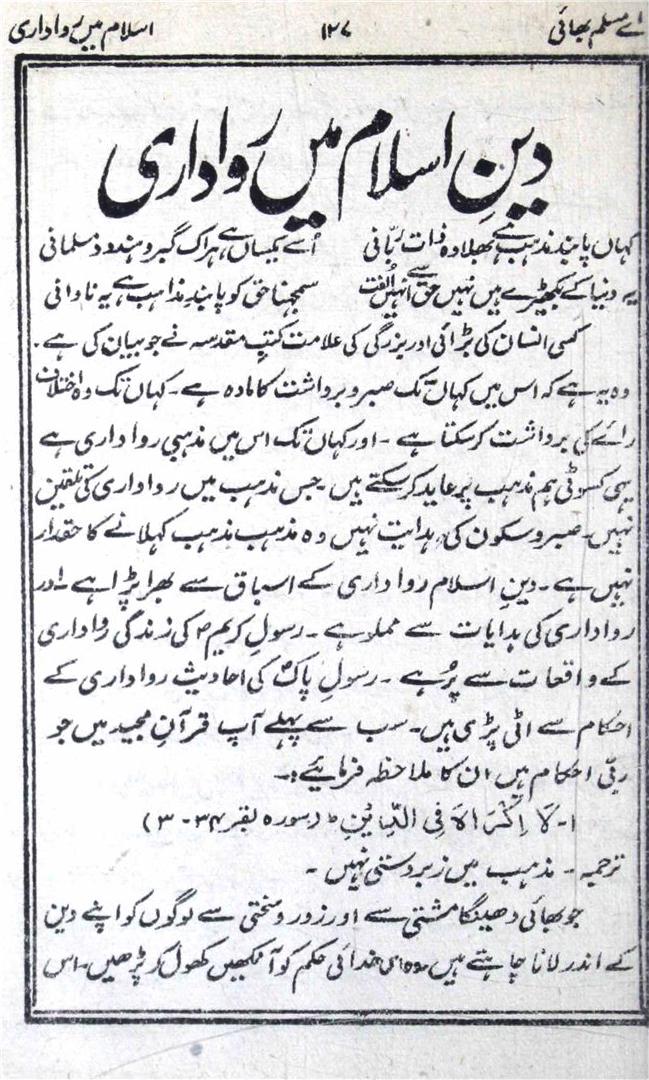 اے مسلم بھائی ۱۳۷ اسلام میں رواداری
دینِ اسلام میں رواداری
کہاں پابندِ مذہب ہے بھلا وہ ذات ربّانی اُسے یکساں ہے ہر اک گبر و ہندو و مسلمانی
یہ دنیا کے بکھیڑے ہیں نہیں حق سے انہیں اُلفت سمجھنا حق کو پابندِ مذاہب ہے یہ نادانی
کسی انسان کی بڑائی اور بزرگی کی علامت کتبِ مقدسہ نے جو بیان کی ہے ۔
وہ یہ ہے کہ اس میں کہاں تک صبر و برداشت کا مادہ ہے ۔ کہاں تک وہ اختلاف
رائے کی برداشت کر سکتا ہے ۔ اور کہاں تک اس میں مذہبی رواداری ہے
یہی کسوٹی ہم مذہب پر عاید کر سکتے ہیں ۔ جس مذہب میں رواداری کی تلقین
نہیں ۔ صبر و سکون کی ہدایت نہیں وہ مذہب مذہب کہلانے کا حقدار
نہیں ہے ۔ دینِ اسلام رواداری کے اسباق سے بھرا پڑا ہے ۔ اور
رواداری کی ہدایات سے مملو ہے ۔ رسولِ کریم ؐ کی زندگی رواداری
کے واقعات سے پُر ہے ۔ رسولِ پاک ؐ کی احادیث رواداری کے
احکام سے اٹی پڑی ہیں ۔ سب سے پہلے آپ قرآنِ مجید میں جو
ربّی احکام ہیں ان کا ملاحظہ فرمائیے :۔
۱- لَا اِكْرَاهَ فِی الدِّیْنِ ۔ (سورہ بقر ۳۴ - ۳)
ترجمہ ۔ مذہب میں زبردستی نہیں ۔
جو بھائی دھینگا مشتی سے اور زور و سختی سے لوگوں کو اپنے دین
کے اندر لانا چاہتے ہیں وہ اس خدائی حکم کو آنکھیں کھول کر پڑھیں ۔ اس